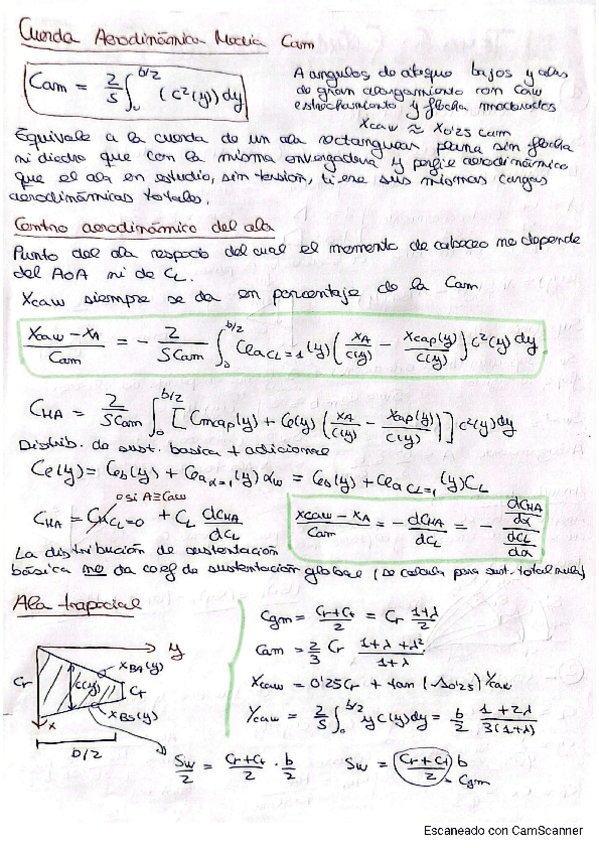 Cuerda Aerodinámica Media Cam
Cam = 2/S ∫₀^{b/2} (c²(y)) dy
A angulos de ataque bajos y alas
de gran alargamiento con
estrechamiento y flecha moderados
xcaw ≈ x0'25 cam
Equivale a la cuerda de un ala rectangular plana sin flecha
ni diedro que con la misma envergadura y perfil aerodinámico
que el ala en estudio, sin torsión, tiene sus mismas cargas
aerodinámicas totales.
Centro aerodinámico del ala
Punto del ala respecto del cual el momento de cabeceo no depende
del AoA ni de CL.
Xcaw siempre se da en porcentaje de la Cam
(xcaw - xA)/Cam = - 2/(S Cam) ∫₀^{b/2} Cla CL=1 (y) (xA/c(y) - xcap(y)/c(y)) c²(y) dy
CMA = 2/(S Cam) ∫₀^{b/2} [Cmcap(y) + Cl(y) (xA/c(y) - xcap(y)/c(y))] c²(y) dy
Distrib. de sust. basica + adicional
Cl(y) = Clb(y) + Cla α=1 (y) αw = Clb(y) + Cla CL=1 (y) CL
0 si A≡Caw
CMA = CMCL=0 + CL dCMA/dCL
(xcaw - xA)/Cam = - dCMA/dCL = - (dCMA/dα)/(dCL/dα)
La distribución de sustentación
básica no da coef de sustentación global (se calcula para sust. total nula)
Ala trapecial
Cr
y
xBA(y)
c(y)
Ct
x
xBS(y)
b/2
Cgm = (Cr+Ct)/2 = Cr (1+λ)/2
Cam = 2/3 Cr (1+λ+λ²)/(1+λ)
Xcaw = 0'25Cr + tan(Λ0'25) Ycaw
Ycaw = 2/S ∫₀^{b/2} y c(y) dy = b/2 (1+2λ)/(3(1+λ))
Sw/2 = (Cr+Ct)/2 · b/2
Sw = (Cr+Ct)/2 b
= Cgm
Escaneado con CamScanner